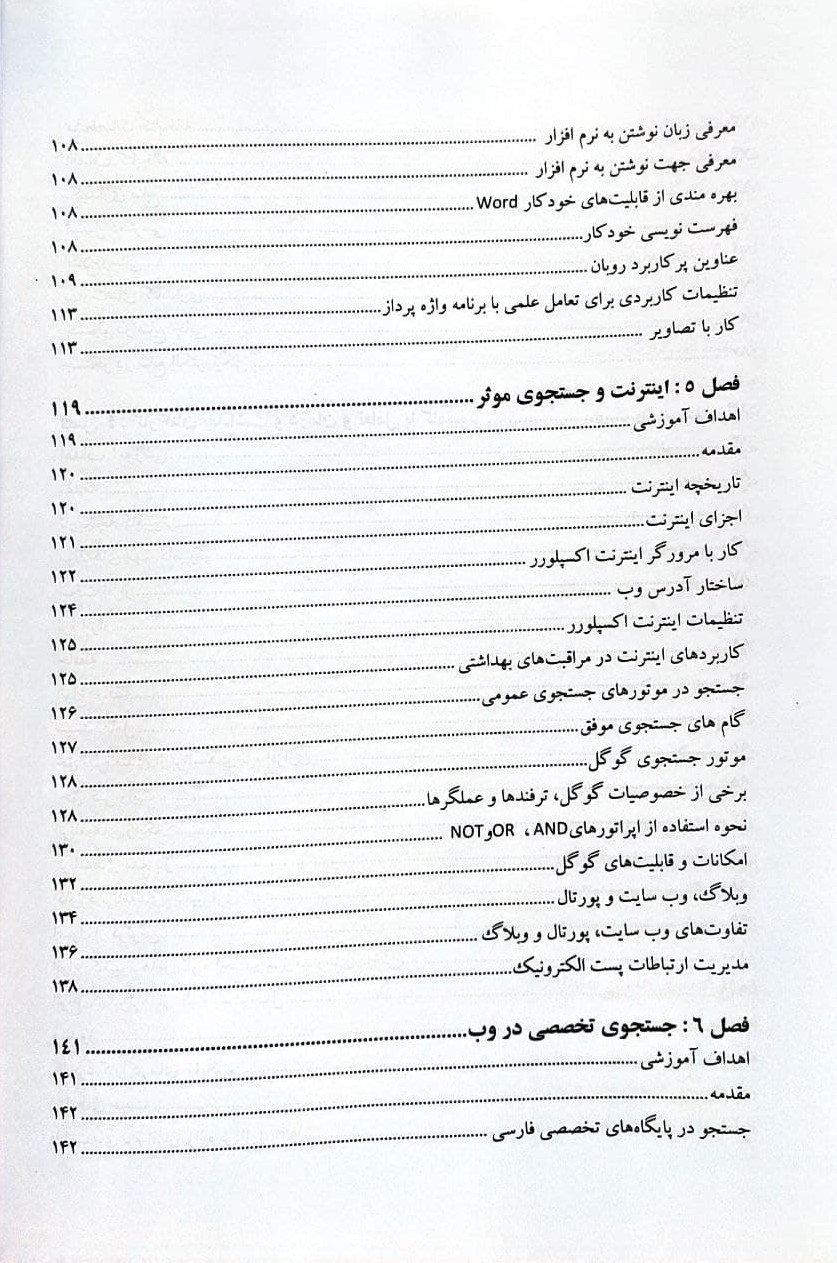 معرفی زبان نوشتن به نرم افزار ........ ۱۰۸
معرفی جهت نوشتن به نرم افزار ........ ۱۰۸
بهره مندی از قابلیت‌های خودکار Word ........ ۱۰۸
فهرست نویسی خودکار ........ ۱۰۸
عناوین پرکاربرد روبان ........ ۱۰۹
تنظیمات کاربردی برای تعامل علمی با برنامه واژه پرداز ........ ۱۱۳
کار با تصاویر ........ ۱۱۳
فصل ۵: اینترنت و جستجوی موثر ........ ۱۱۹
اهداف آموزشی ........ ۱۱۹
مقدمه ........ ۱۲۰
تاریخچه اینترنت ........ ۱۲۰
اجزای اینترنت ........ ۱۲۱
کار با مرورگر اینترنت اکسپلورر ........ ۱۲۲
ساختار آدرس وب ........ ۱۲۴
تنظیمات اینترنت اکسپلورر ........ ۱۲۵
کاربردهای اینترنت در مراقبت‌های بهداشتی ........ ۱۲۵
جستجو در موتورهای جستجوی عمومی ........ ۱۲۶
گام های جستجوی موفق ........ ۱۲۷
موتور جستجوی گوگل ........ ۱۲۸
برخی از خصوصیات گوگل، ترفندها و عملگرها ........ ۱۲۸
نحوه استفاده از اپراتورهای AND ، OR و NOT ........ ۱۳۰
امکانات و قابلیت‌های گوگل ........ ۱۳۲
وبلاگ، وب سایت و پورتال ........ ۱۳۴
تفاوت‌های وب سایت، پورتال و وبلاگ ........ ۱۳۶
مدیریت ارتباطات پست الکترونیک ........ ۱۳۸
فصل ٦: جستجوی تخصصی در وب ........ ١٤١
اهداف آموزشی ........ ۱۴۱
مقدمه ........ ۱۴۲
جستجو در پایگاه‌های تخصصی فارسی ........ ۱۴۲